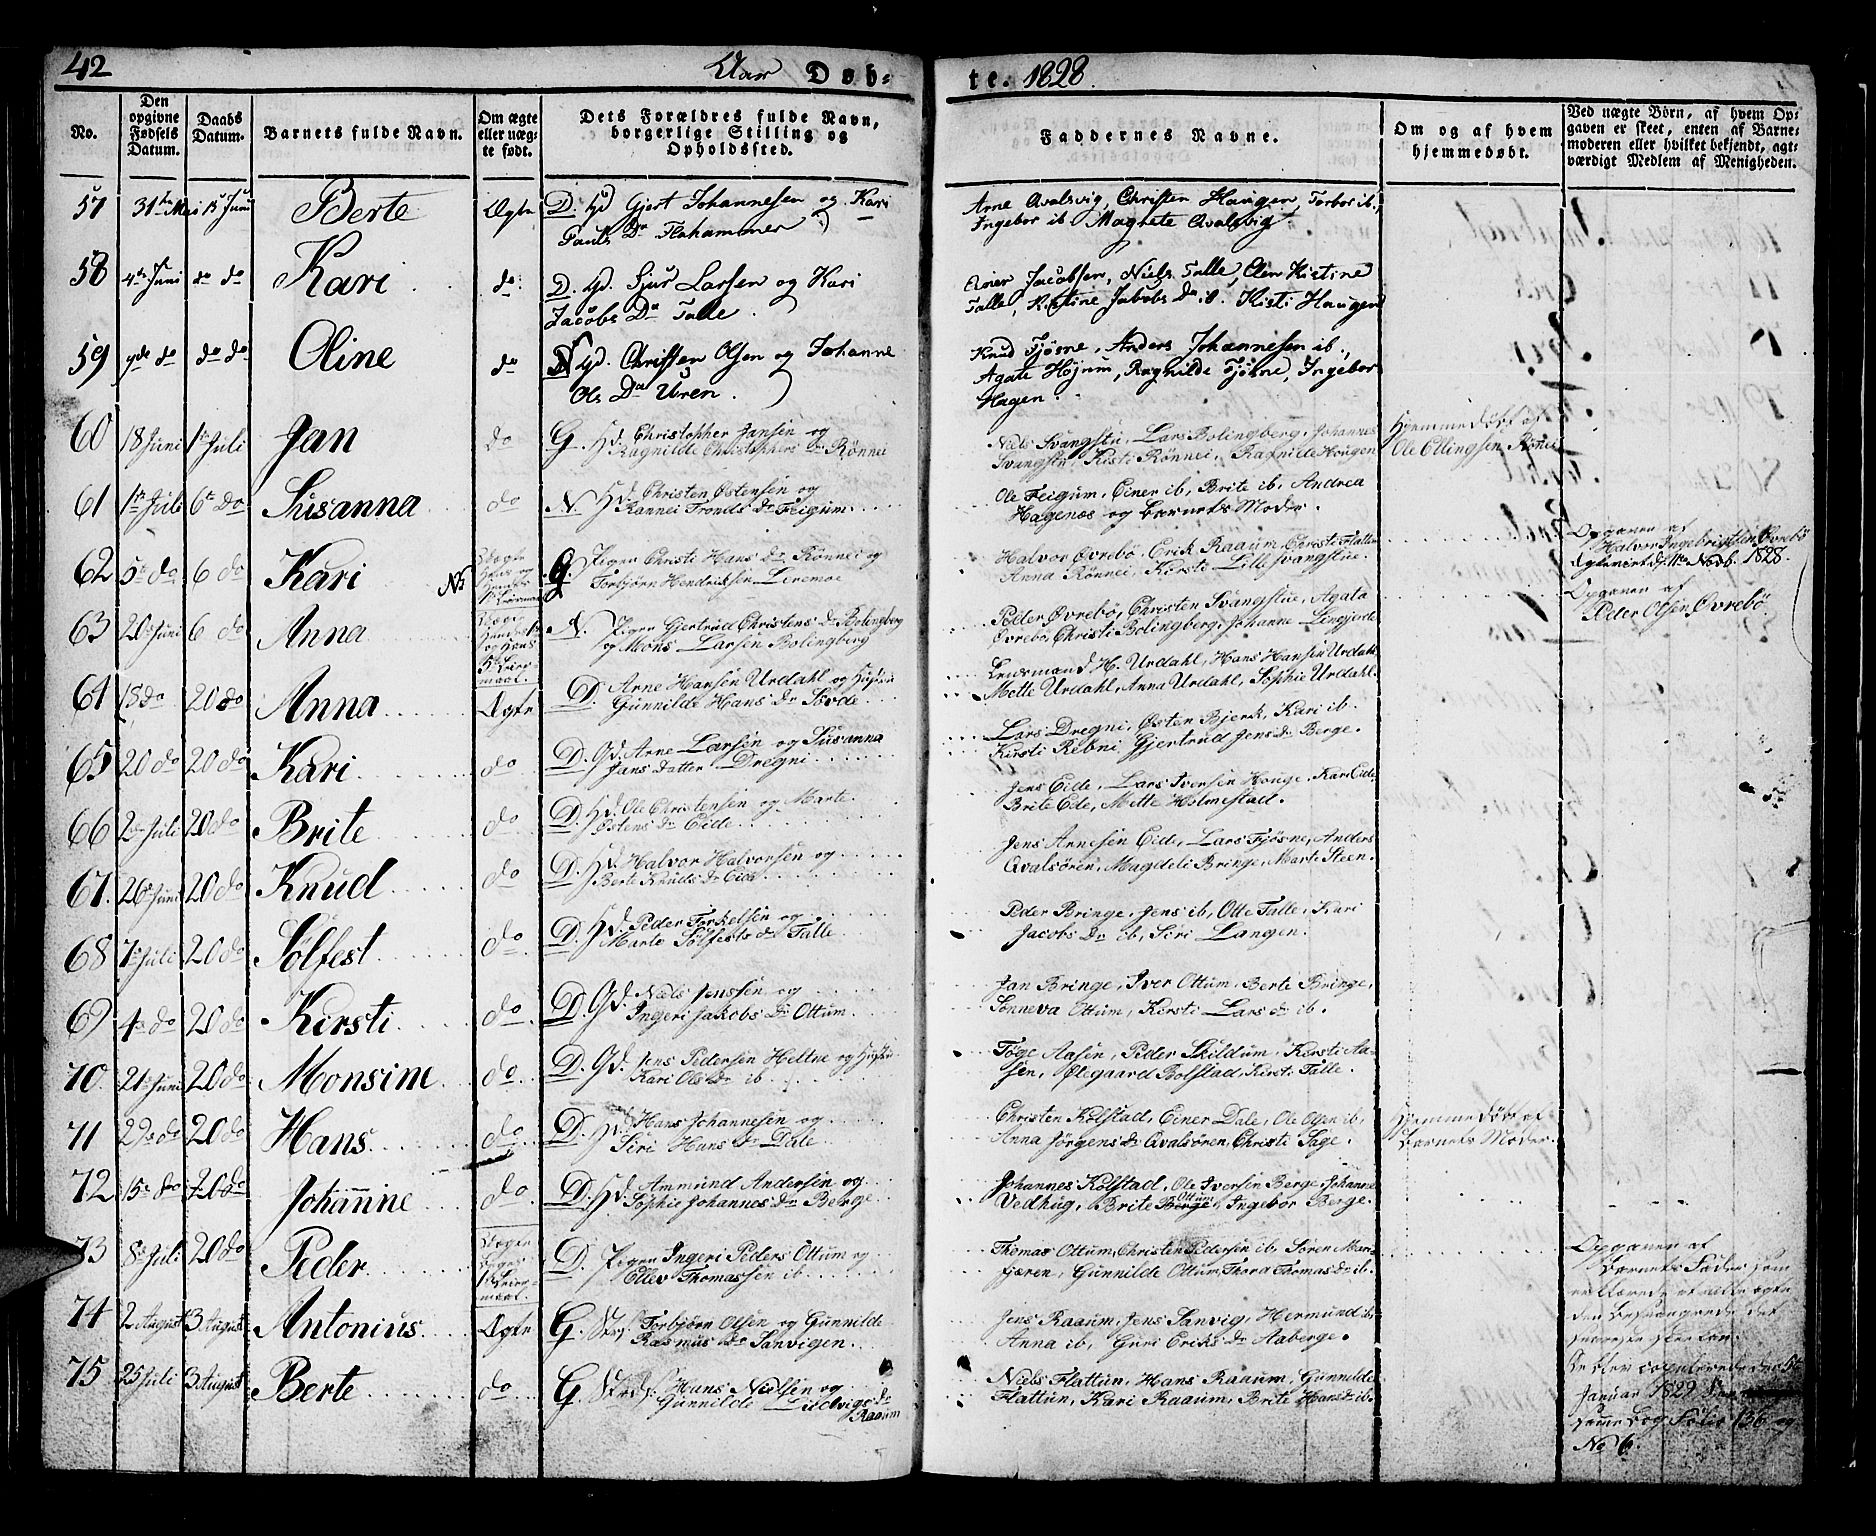 42
Aar Døb-
te. 1828.
No.
Den
opgivne
Fødsels
Datum.
Daabs
Datum.
Barnets fulde Navn.
Om ægte
eller uæg-
te født.
Dets Forældres fulde Navn,
borgerlige Stilling og
Opholdssted.
Faddernes Navne.
Om og af hvem
hjemmedøbt.
Ved uægte Børn, af hvem Op-
gaven er skeet, enten af Barne-
moderen eller hvilket bekjendt, agt-
værdigt Medlem af Menigheden.
57 31te Mai 15 Juni Berte Ægte D. Gd Gjert Johannesen og Kari
Pauls Dr Flahammer
Arne Qvalsvig, Christen Haugen, Torbor ib.,
Ingebor ib Magrete Qvalsvig
58 4de Juni do do Kari do D. Gd. Sjur Larsen og Kari
Jacobs Dr Talle.
Einer Jacobsen, Niels Talle, Elen Kistine
Talle, Kistine Jakobs Dr ib. Kisti Haugen
59 7de do do do Oline do N Gd. Christen Olsen og Johanne
Ols Dr Uren.
Knud Fjøsne, Anders Johannesen ib.,
Agate Højum, Ragnilde Fjøsne, Ingebor
Hagen.
60 18 Juni 1te Juli Jan do G. Hd. Christopher Jansen og
Ragnilde Christophers Dr Rønnei
Niels Svangstu, Lars Bolingberg, Johannes
Svangstu, Kisti Rønnei, Ragnilde Hougen
Hjemmedøbt af
Ole Ellingsen Rønei
61 1te Juli 6te do Susanna do N. Hd. Christen Østensen og
Rannei Tronds dr Feigum
Ole Feigum, Einer ib, Brite ib, Andrea
Hagenæs og Barnets Moder.
62 5te do 6 do Kari No G. Pigen Christi Hans dr Rønnei og
Torbjørn Hendriksen Liremoe
Halvor Øvrebø, Erik Raaum, Christi Flattun
Anna Rønnei, Kirsti Lille Svangstue.
Opgaven af
Halvor Ingebrigtsen Øvrebø
Egteviet d. 11te Novb. 1828.
63 20de Juni 6 do Anna N. Pigen Gjertrud Christens dr Bolingberg
og Mons Larsen Bolingberg
Peder Øvrebø, Christen Svangstue, Agata
Øvrebø, Christi Bolingberg, Johanne Lingjerde
Opgaven af
Peder Olsen Øvrebø
64 18 do 20 do Anna Ægte D. Arne Hansen Urdahl og Hustru
Gunnilde Hans dr Sovde
Lensmand H. Urdahl, Hans Hansen Urdahl
Mette Urdahl, Anna Urdahl, Sophie Urdahl.
65 20 do 20 do Kari do D. Gd. Arne Larsen og Susanna
Jans datter Dregni
Lars Dregni, Østen Bjerk, Kari ib.
Kersti Rebni, Gjertrud Jens dr Berge.
66 2den Juli 20 do Brite do D. Hd. Ole Christensen og Marte
Østens dr Eide
Jens Eide, Lars Iversen Houge, Kari Eide,
Brite Eide, Mette Holmestad.
67. 26de Juni 20 do Knud do D. Hd. Halvor Halvorsen og
Berte Knuds dr Eide
Jens Arnesen Eide, Lars Fjøsne, Anders
Qvalsøren, Magdeli Bringe, Marte Steen.
68 7de Juli 20 do Sølfest do D. Hd. Peder Torkelsen og
Marte Sølfests dr Talle
Peder Bringe, Jens ib, Otte Talle, Kari
Jacobs dr ib, Siri Langen.
69 4de do 20 do Kirsti do D. Gd. Niels Jenssen og
Ingeri Jakobs dr Ottum
Jan Bringe, Iver Ottum, Berte Bringe,
Sønneva Ottum, Kersti Lars dr ib.
70. 21de Juni 20 do Monsine do D. Gd. Jens Pedersen Heltne og Hustru
Kari Ols dr ib
Tøge Aasen, Peder Skildum, Kersti Aa-
sen, Ølegaard Bolstad, Kirsti Talle.
71 29de do 20 do Hans do D. Hd. Hans Johannesen og
Siri Hans dr Dale
Christen Kolstad, Einer Dale, Ole Olsen ib,
Anna Jørgens dr Qvalsøren, Christi Sage.
Hjemmedøbt af
Barnets Moder.
72 15de do 20 do Johanne do D. Hd. Ammund Andersen og
Sophie Johannes dr Berge
Johannes Kolstad, Ole Iversen Berge, Johanne
Vedhug, Brite Ottum, Ingebor Berge.
73 8de Juli 20 do Peder D. Pigen Ingeri Peders Ottum og
Ellev Thomassen ib
Thomas Ottum, Christen Pedersen ib, Søren Mari-
fjæren, Gunnilde Ottum, Thora Thomas dr ib.
Opgaven af
Barnets Fader som
74 2 August 3 August Antonius Ægte G. Torbjørn Olsen og Gunnilde
Rasmus dr Sanvigen
Jens Raaum, Jens Sanvig, Hermund ib,
Anna ib, Guri Eriks dr Aaberge.
75 25 Juli 3 August Berte do G. Hans Nielsen og
Gunnilde Ludvigs dr
Raaum
Niels Flattun, Hans Raaum, Gunnilde
Flattun, Kari Raaum, Brite Hans dr ib.
Januar 1829
Folio 136 og
No 6.